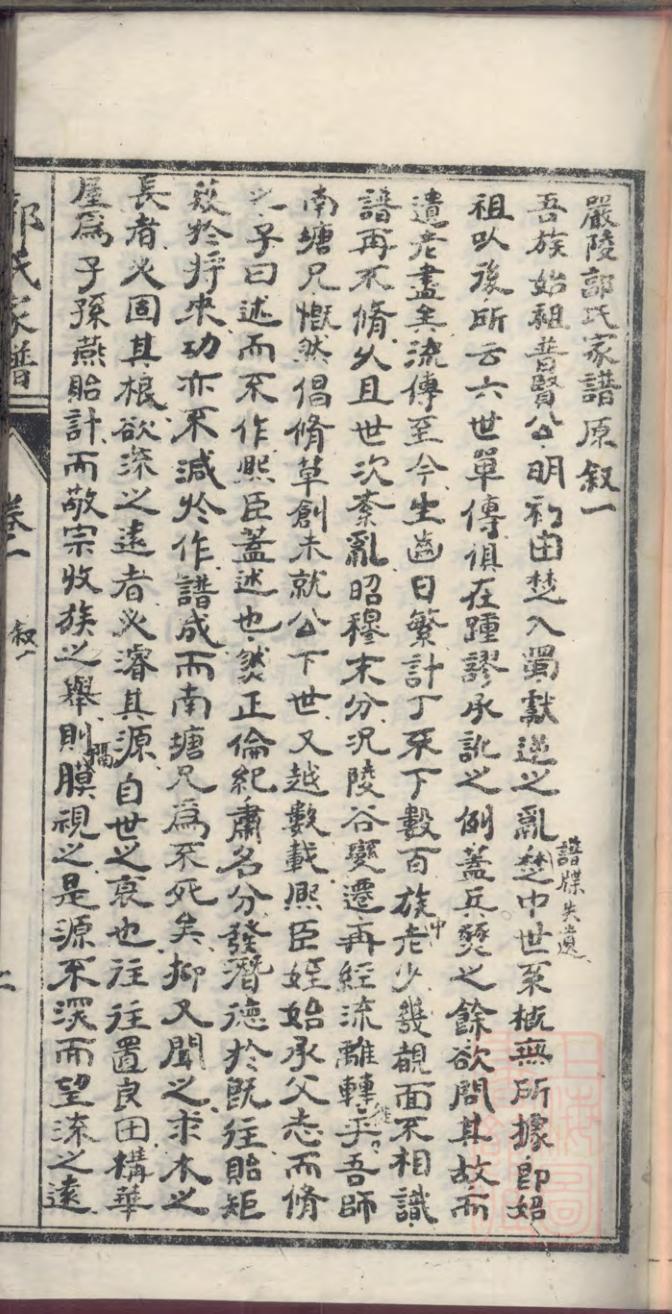 嚴陵郭氏家譜原叙一
吾族始祖普賢公明初由楚入蜀獻逆之亂譜牒失遺楚中世系槪無所據卽始
祖以後所云六世單傳俱在踵謬承訛之例蓋兵燹之餘欲問其故而
遺老盡矣流傳至今生齒日繁計丁不下數百族中老少幾覩面不相識
譜再不脩久且世次紊亂昭穆末分况陵谷變遷再經流離轉徙乎吾師
南塘兄慨然倡脩草創未就公下世又越數載熙臣姪始承父志而脩
之子曰述而不作熙臣蓋述也然正倫紀肅名分發潛德於旣往貽矩
䂓於將來功亦不減於作譜成而南塘兄爲不死矣抑又聞之求木之
長者必固其根欲流之遠者必濬其源自世之衰也往往置良田構華
屋爲子孫燕貽計而敬宗收族之舉則膜隔視之是源不深而望流之遠
郭氏家譜
卷一
叙一